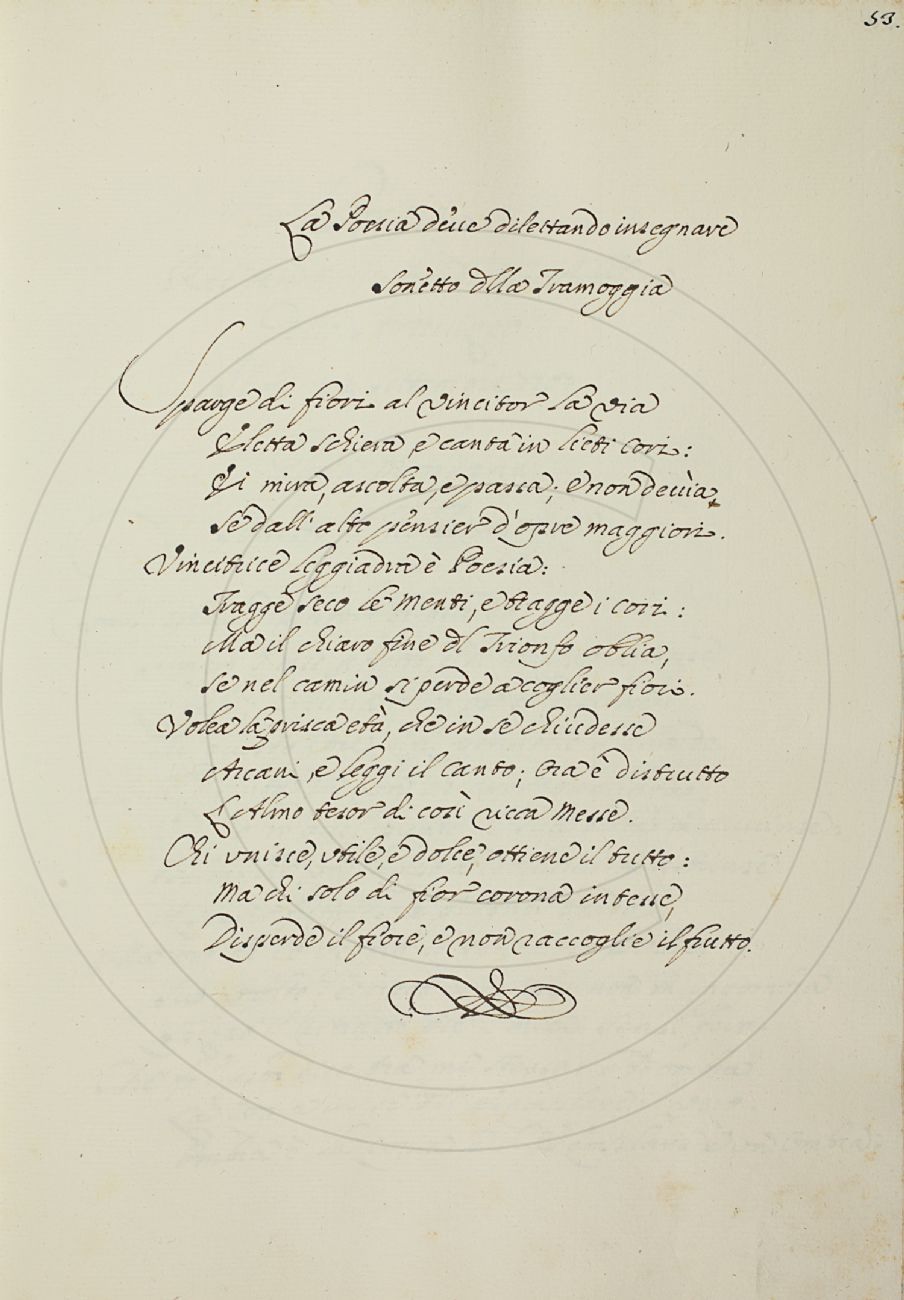 53.
La Poesia deue dilettando insegnare
Sonetto dlla Tramoggia
Sparge di fiori al vincitor la via
Eletta schiera, e canta in lieti cori:
Ei mira, ascolta, e passa; e non devìa,
Se dall' alto pensier d'opre maggiori.
Vincitrice leggiadra è Poesia:
Tragge seco le Menti, e tragge i cori:
Ma il chiaro fine dl Trionfo oblia,
se nel camin si perde a coglier fiori.
Volea la prisca età, che in se chiudesse
Arcani, e leggi il canto; Ora è distrutto
L'Almo tesor di così ricca Messe.
Chi vnisce, vtile, e dolce, ottiene il tutto:
Ma chi solo di fior corona intesse,
Disperde il fiore, e non raccoglie il frutto.